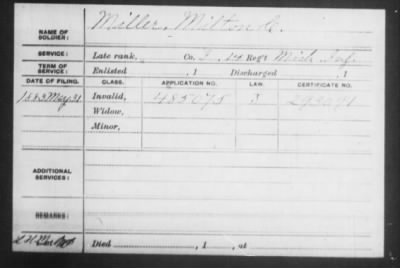 NAME OF SOLDIER: Miller, Milton C.
SERVICE: Late rank, Co. I, 14 Reg't Mich. Inf.
TERM OF SERVICE: Enlisted , 1 Discharged , 1
DATE OF FILING. CLASS. APPLICATION NO. LAW. CERTIFICATE NO.
1883 May 31 Invalid, 485075 J 293091
Widow,
Minor,
ADDITIONAL SERVICES:
REMARKS:
Died , 1 , at